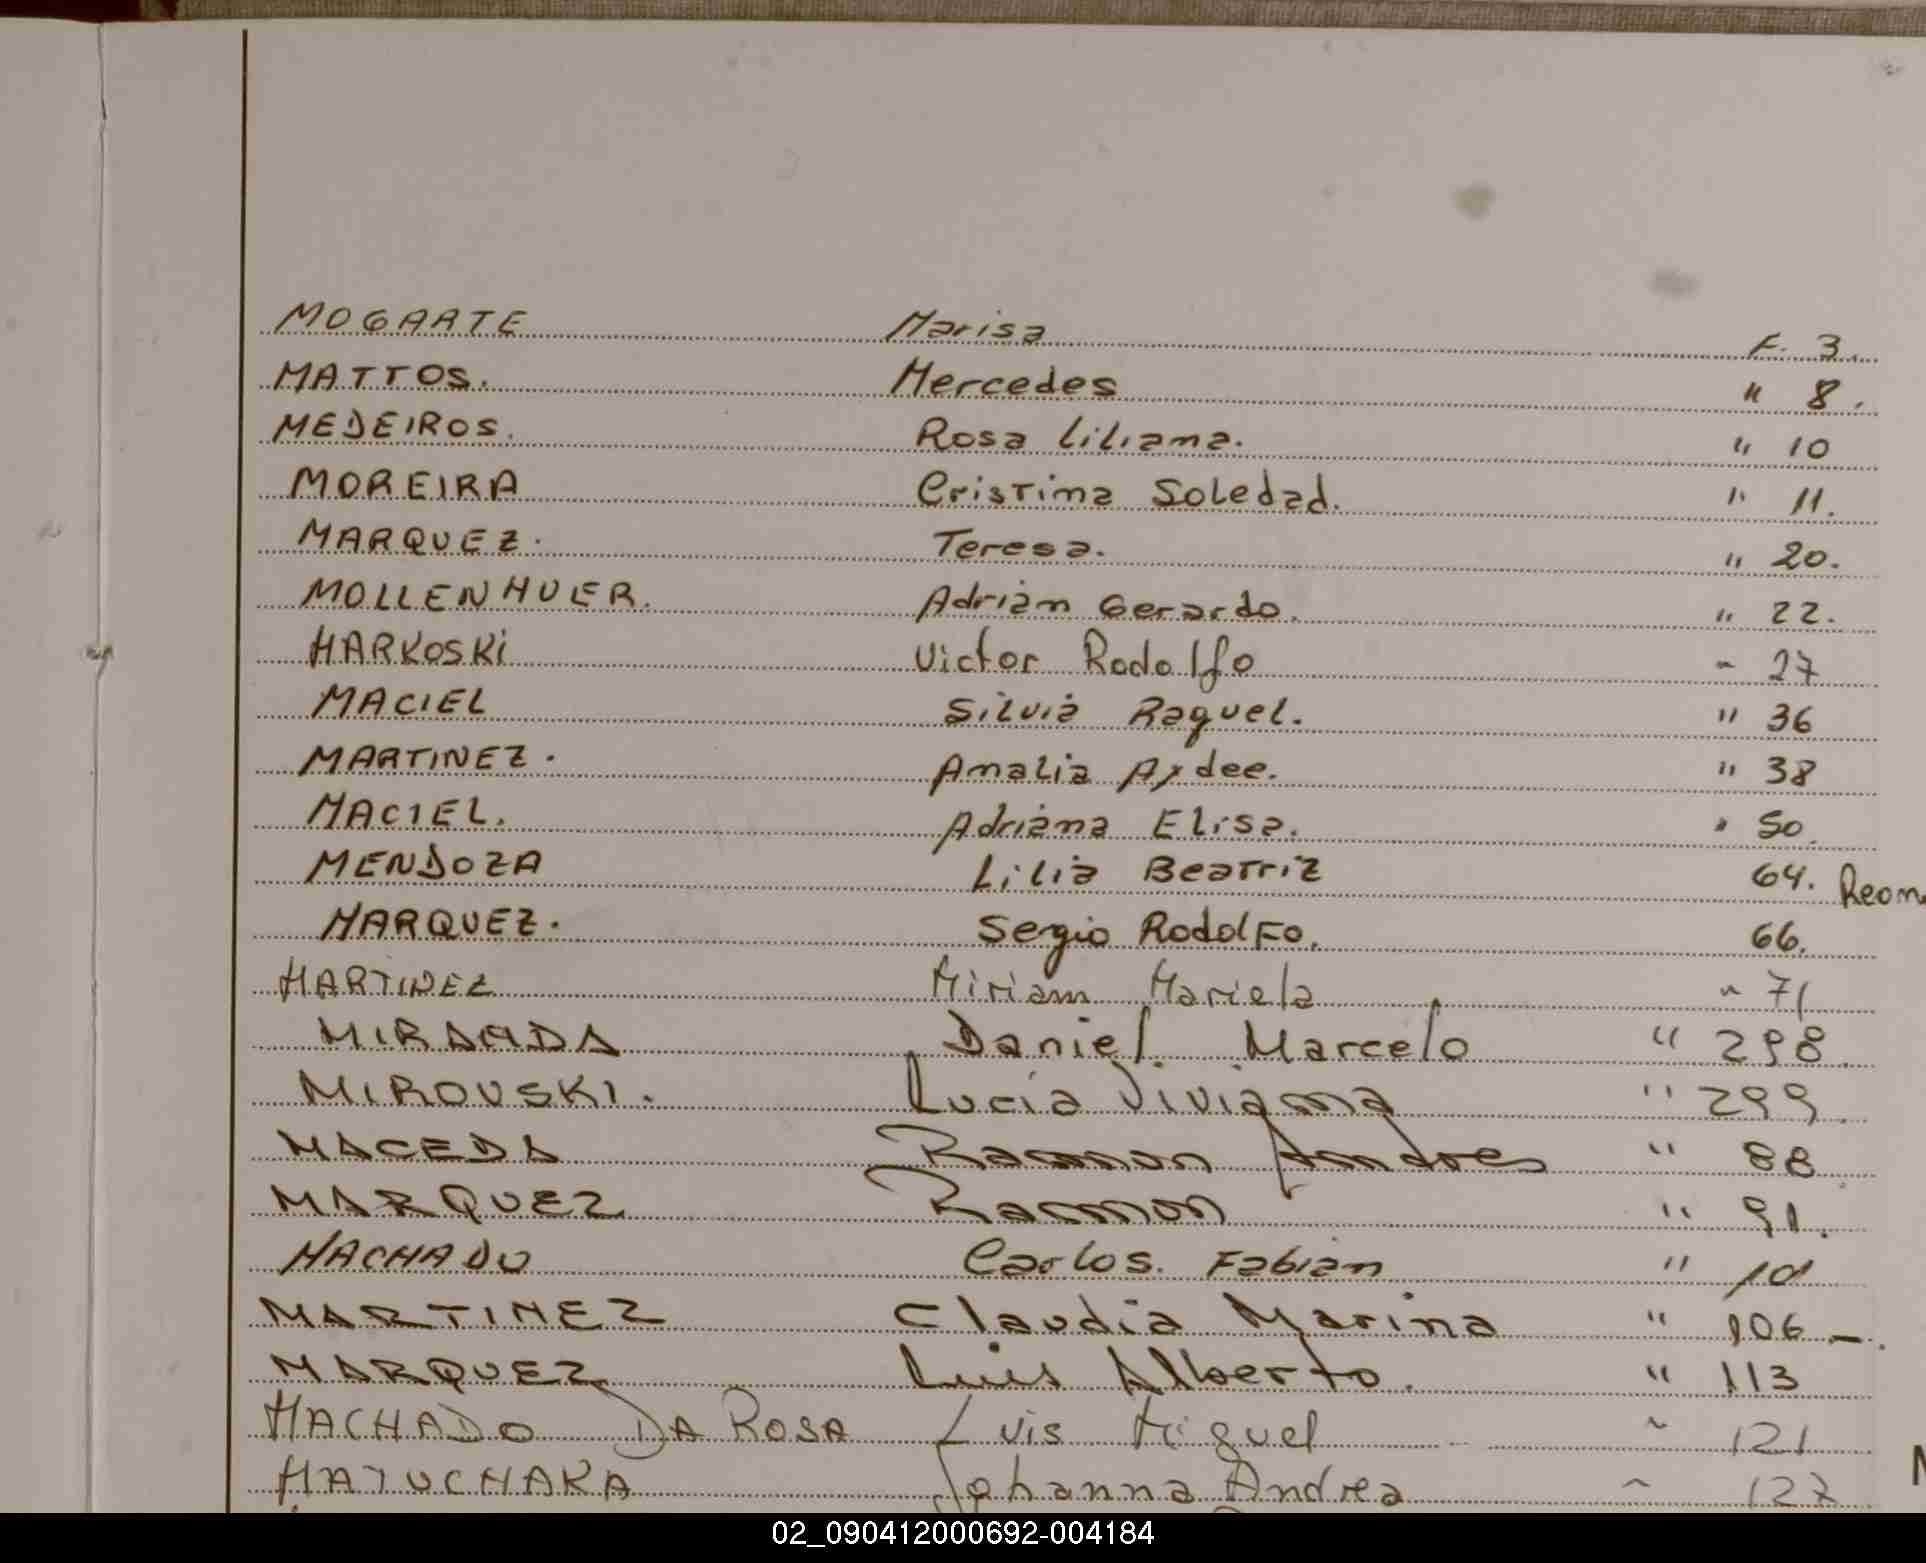 MOGARTE Marisa F. 3.
MATTOS. Mercedes " 8.
MEDEIROS. Rosa Liliana. " 10
MOREIRA Cristina Soledad. " 11.
MARQUEZ. Teresa. " 20.
MOLLENHUER. Adrián Gerardo. " 22.
MARKOSKi Victor Rodolfo " 27
MACIEL Silvia Raquel. " 36
MARTINEZ. Amalia Aydee. " 38
MACIEL. Adriana Elisa. " 50.
MENDOZA Lilia Beatriz 64. Recon
MARQUEZ. Sergio Rodolfo. 66.
MARTINEZ Miriam Mariela " 71
MIRANDA Daniel Marcelo " 298.
MIROVSKI. Lucia Viviana " 299.
MACEDA Ramon Andres " 88
MARQUEZ Ramon " 91.
MACHADO Carlos. Fabián " 101
MARTINEZ Claudia Marina " 106 -.
MARQUEZ Luis Alberto. " 113
MACHADO DA ROSA Luis Miguel " 121
MATUCHAKA Johanna Andrea " 127
02_090412000692-004184